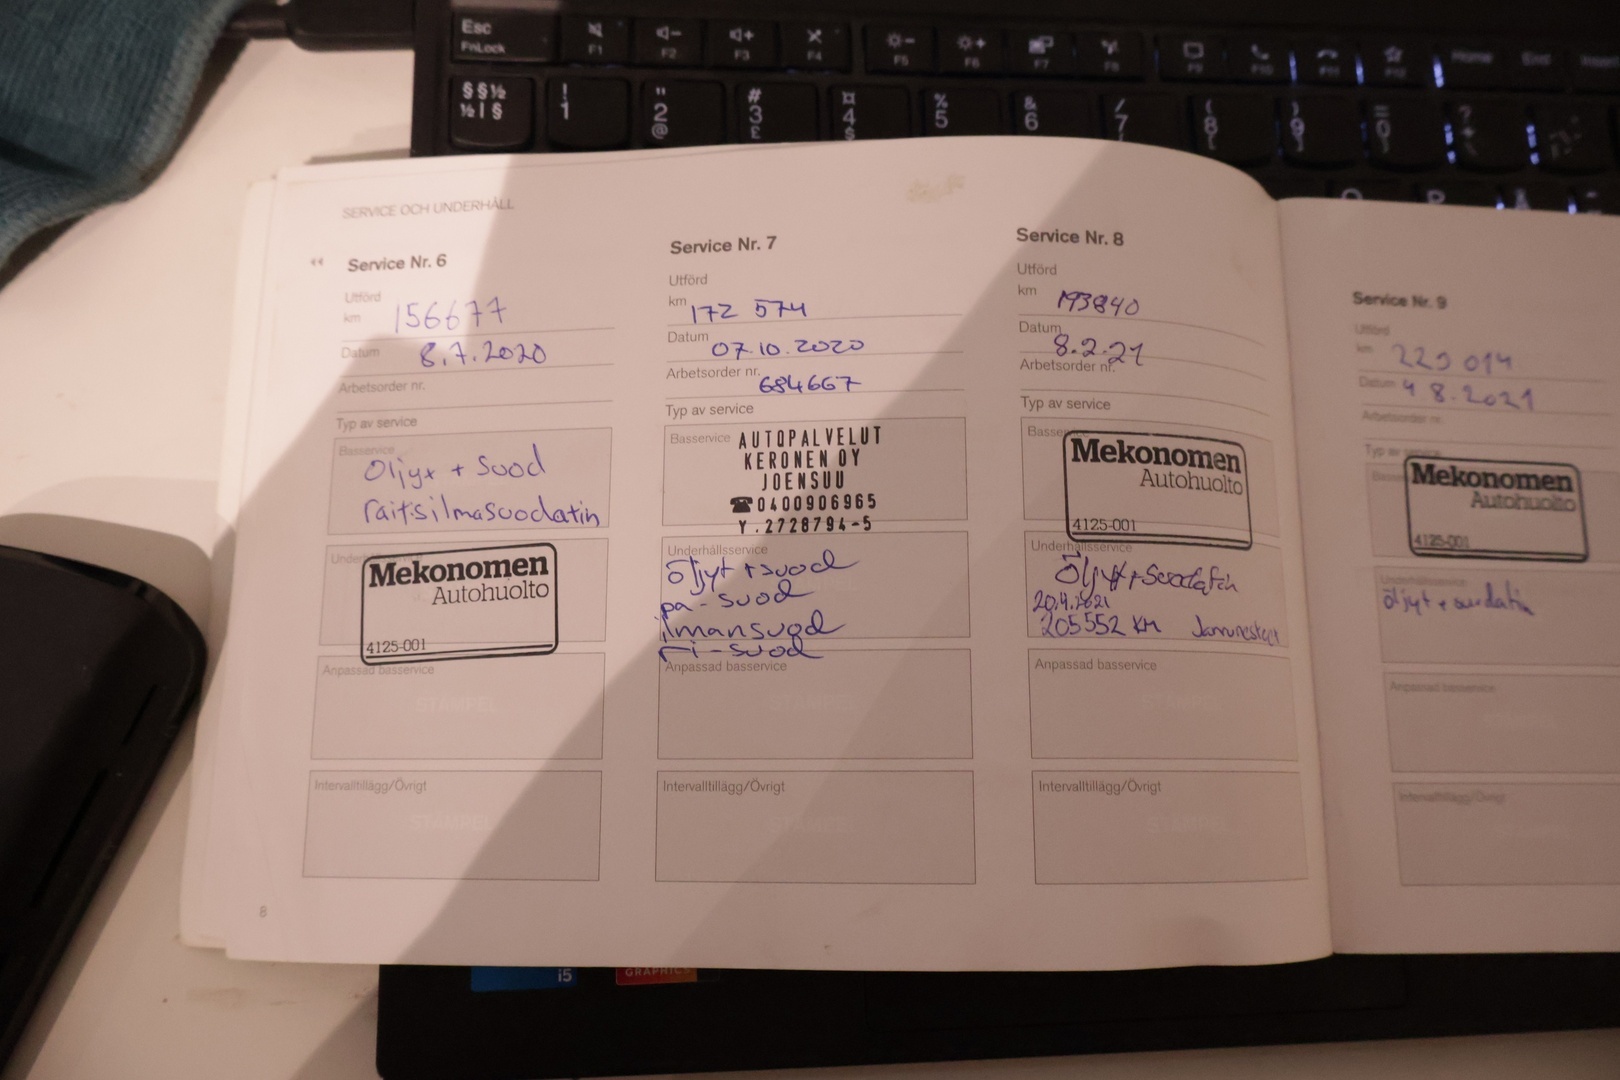 Esc
FnLock
F1
F2
F3
F4
F5
F6
F7
F8
Home
§ § ½
½ | §
!
1
"
2
@
#
3
£
¤
4
$
%
5
&
6
/
7
(
8
)
9
=
0
?
+
SERVICE OCH UNDERHÅLL
Service Nr. 6
Utförd
km 156677
Datum 8.7.2020
Arbetsorder nr.
Typ av service
Basservice
Öljyt + Suod
raitisilmasuodatin
Mekonomen
Autohuolto
4125-001
Anpassad basservice
STÄMPEL
Intervalltillägg/Övrigt
STÄMPEL
8
Service Nr. 7
Utförd
km 172 574
Datum 07.10.2020
Arbetsorder nr. 684667
Typ av service
Basservice
AUTOPALVELUT
KERONEN OY
JOENSUU
☎0400906965
Y.2728794-5
Underhållsservice
öljyt + suod
pa-suod
ilmansuod
ri-suod
Anpassad basservice
STÄMPEL
Intervalltillägg/Övrigt
STÄMPEL
Service Nr. 8
Utförd
km 193840
Datum 8.2.21
Arbetsorder nr.
Typ av service
Mekonomen
Autohuolto
4125-001
Underhållsservice
Öljyt + Suodatin
20.4.2021
205552 KM
Anpassad basservice
STÄMPEL
Intervalltillägg/Övrigt
STÄMPEL
Service Nr. 9
Utförd
km 229 014
Datum 4 8.2021
Arbetsorder nr.
Typ av service
Mekonomen
Autohuolto
4125-001
Underhållsservice
öljyt + suodatin
Anpassad basservice
Intervalltillägg/Övrigt
i5
GRAPHICS